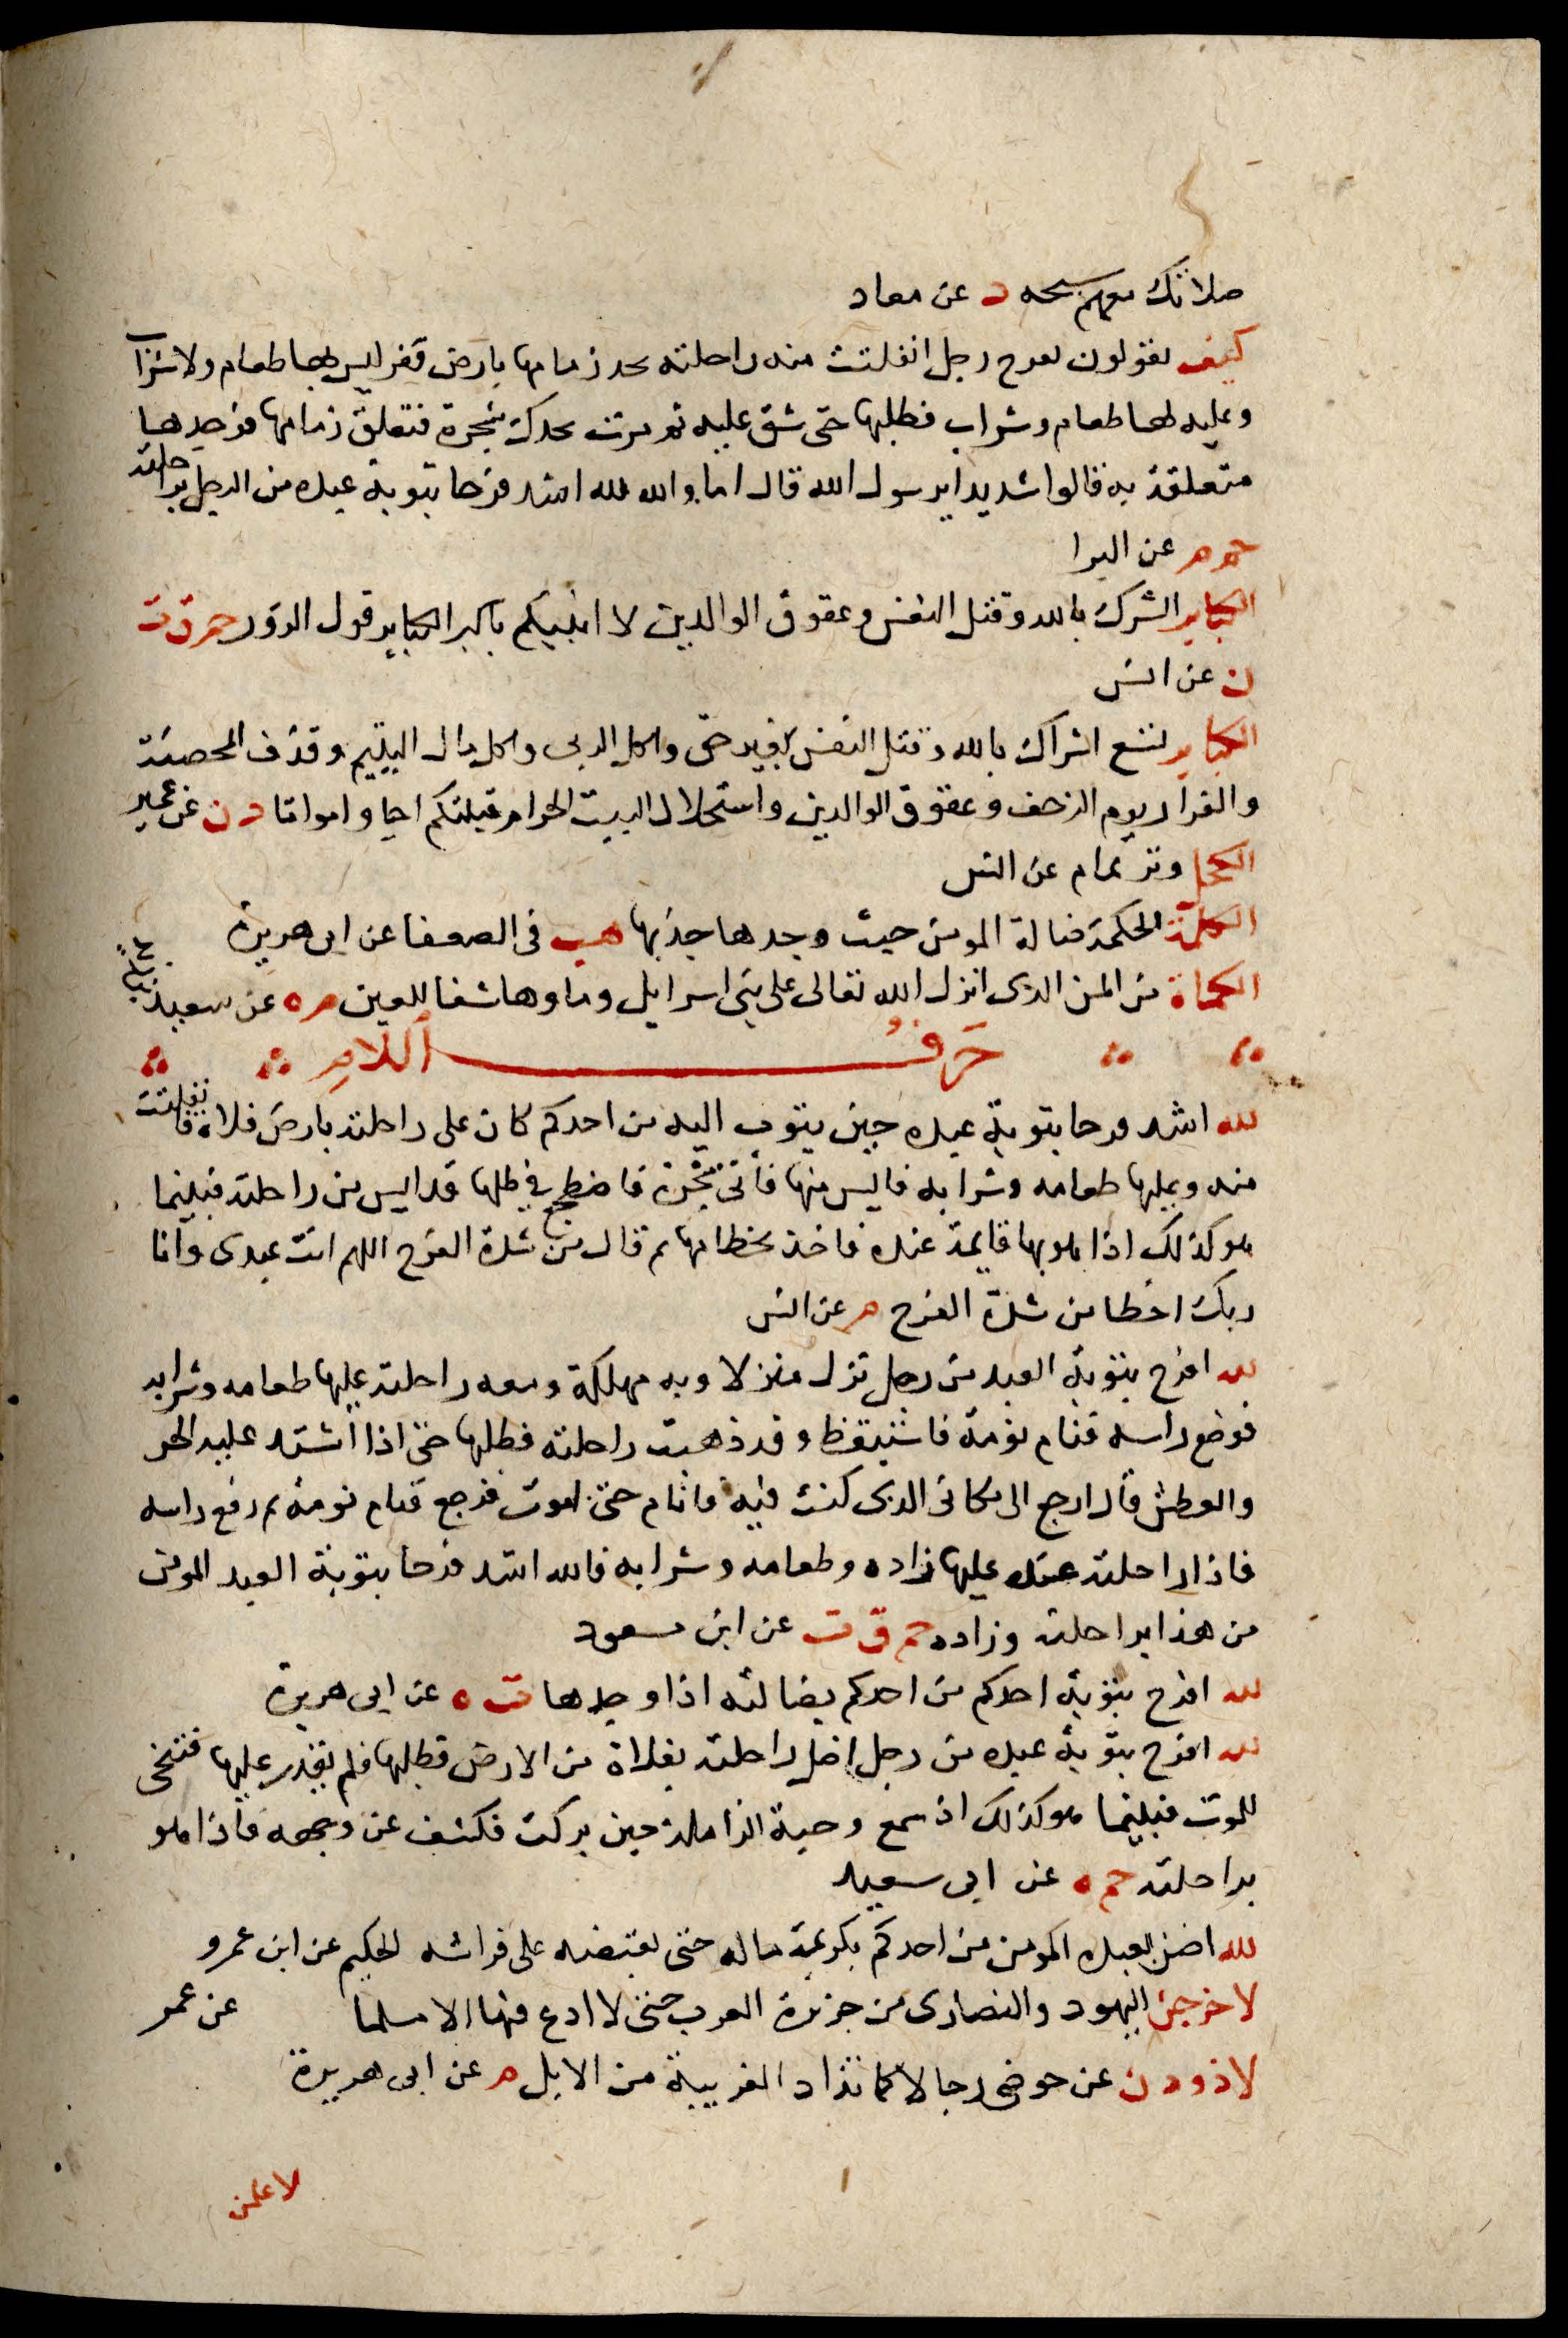 صلاتك معهم سبحه د عن معاد
كيف تقولون بفرح رجل انفلتت منه راحلته تجر زمامها بارض قفر ليس بها طعام ولا شراب
وعليه لها طعام وشراب فطلبها حتى شق عليه ثم مرت بجدل شجرة فتعلق زمامها فوجدها
متعلقة به قالوا شديدا يرسول الله قال اما والله لله اشد فرحا بتوبة عبده من الرجل براحلته
حم م عن البرا
الكباير الشرك بالله وقتل النفس وعقوق الوالدين لا انبيكم باكبر الكباير قول الزور حم ق ت
ن عن انس
الكباير تسع اشراك بالله وقتل النفس بغير حق واكل الربى واكل مال اليتيم وقذف المحصنة
والفرار يوم الزحف وعقوق الوالدين واستحلال البيت الحرام قبلتكم احيا وامواتا د ن عن عمير
الكحل وتر تمام عن انس
الكلمة الحكمة ضالة المومن حيث وجدها جذبها هب في الضعفا عن ابى هريرة
الكماة من المن الذى انزل الله تعالى على بنى اسرايل وماوها شفا للعين م ه عن سعيد بن زيد
حرف اللام
لله اشد فرحا بتوبة عبده حين يتوب اليه من احدكم كان على راحلته بارض فلاه فانفلتت
منه وعليها طعامه وشرابه فايس منها فأتى شجرة فاضطجع في ظلها قد ايس من راحلته فبينما
هو كذلك اذا هو بها قايمة عنده فاخذ بخطامها ثم قال من شدة الفرح اللهم انت عبدى وانا
ربك اخطا من شدة الفرح م عن انس
لله افرح بتوبة العبد من رجل نزل منزلا وبه مهلكة ومعه راحلته عليها طعامه وشرابه
فوضع راسه فنام نومة فاستيقظ وقد ذهبت راحلته فطلبها حتى اذا اشتد عليه الحر
والعطش قال ارجع الى مكانى الذى كنت فيه فانام حتى اموت فرجع فنام نومة ثم رفع راسه
فاذا راحلته عنده عليها زاده وطعامه وشرابه فالله اشد فرحا بتوبة العبد المومن
من هذا براحلته وزاده حم ق ت عن ابن مسعود
لله افرح بتوبة احدكم من احدكم بضالته اذا وجدها ت ه عن ابى هريرة
لله افرح بتوبة عبده من رجل اضل راحلته بفلاة من الارض فطلبها فلم يقدر عليها فتسجى
للموت فبينما هو كذلك اذ سمع وجبة الراحلة حين بركت فكشف عن وجهه فاذا هو
براحلته حم ه عن ابى سعيد
لله اضن بعبده المومن من احدكم بكريمة ماله حتى يقبضه على فراشه الحكيم عن ابن عمرو
لاخرجن اليهود والنصارى من جزيرة العرب حتى لا ادع فيها الا مسلما عن عمر
لاذودن عن حوضى رجالا كما تذاد الغريبة من الابل م عن ابى هريرة
لاعلمن